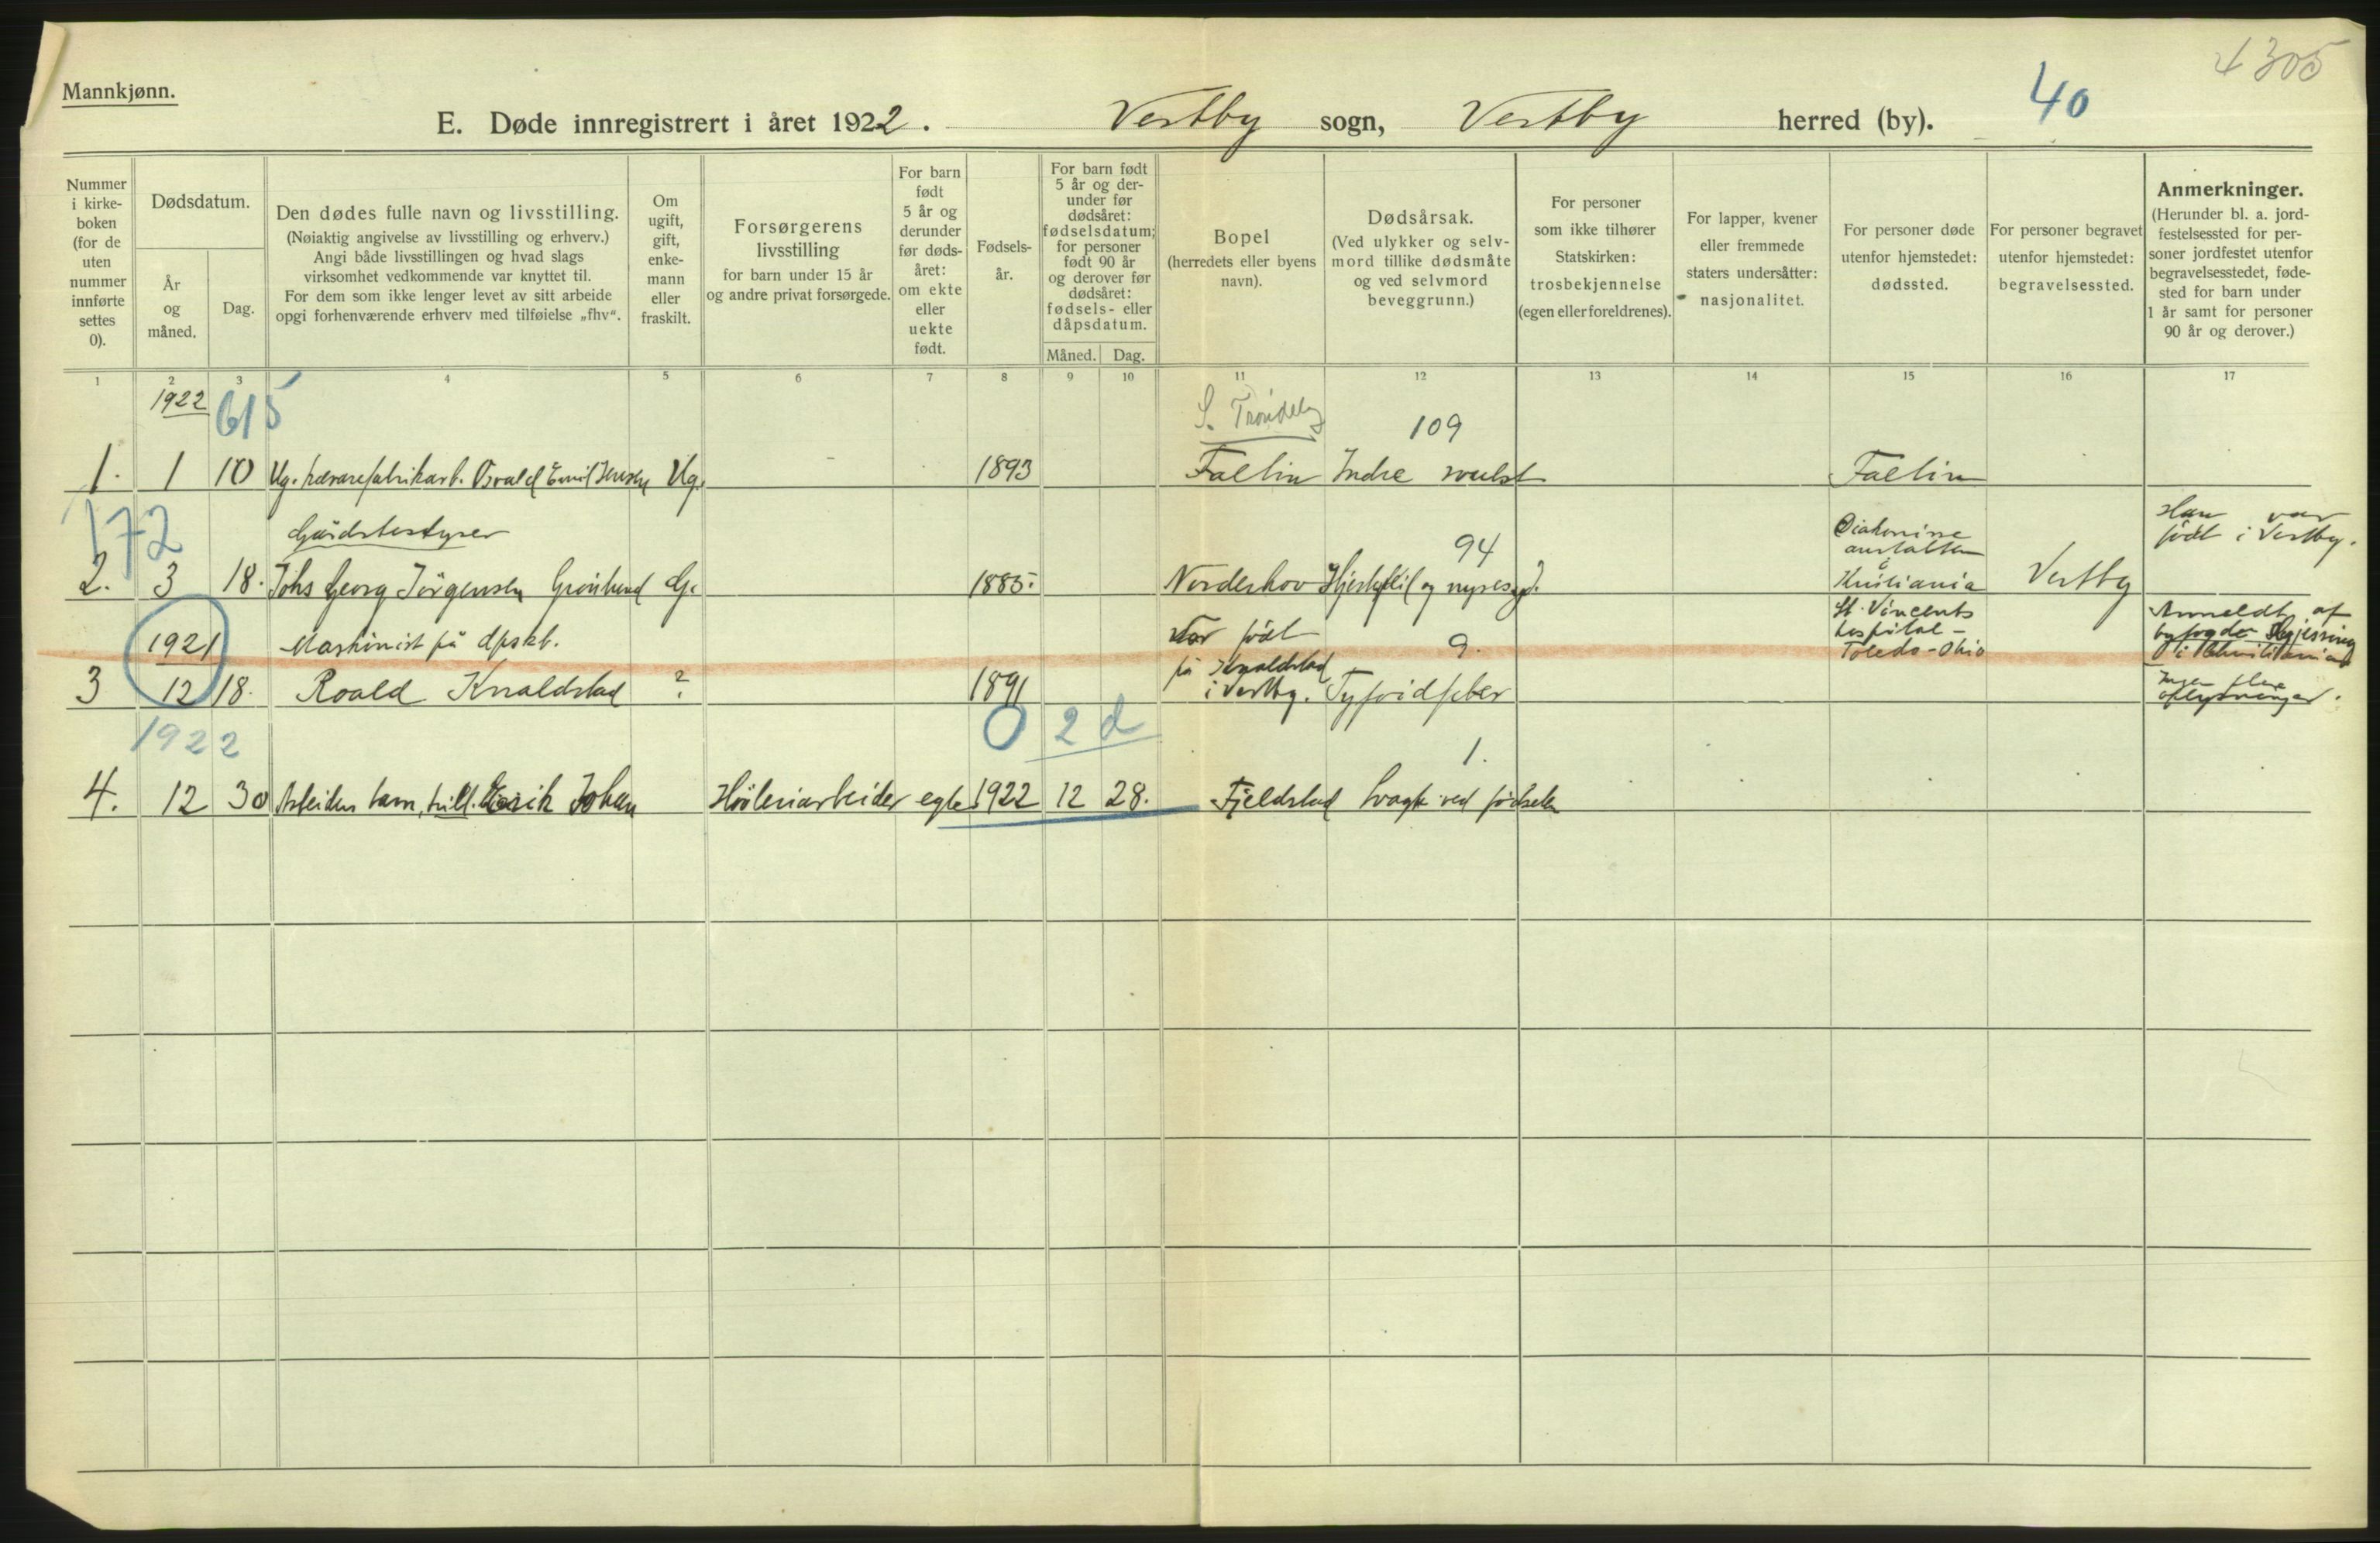 4305
40
Mannkjønn.
E. Døde innregistrert i året 1922. Vestby sogn, Vestby herred (by).
Nummer i kirke-boken (for de uten nummer innførte settes 0).
Dødsdatum.
År og måned.
Dag.
Den dødes fulle navn og livsstilling.
(Nøiaktig angivelse av livsstilling og erhverv.)
Angi både livsstillingen og hvad slags
virksomhet vedkommende var knyttet til.
For dem som ikke lenger levet av sitt arbeide
opgi forhenværende erhverv med tilføielse „fhv“.
Om ugift, gift, enke-mann eller fraskilt.
Forsørgerens livsstilling
for barn under 15 år
og andre privat forsørgede.
For barn født 5 år og derunder før døds-året: om ekte eller uekte født.
Fødsels-år.
For barn født 5 år og der-under før dødsåret: fødselsdatum; for personer født 90 år og derover før dødsåret: fødsels- eller dåpsdatum.
Måned. Dag.
Bopel
(herredets eller byens navn).
Dødsårsak.
(Ved ulykker og selv-mord tillike dødsmåte og ved selvmord beveggrunn.)
For personer som ikke tilhører Statskirken: trosbekjennelse (egen eller foreldrenes).
For lapper, kvener eller fremmede staters undersåtter: nasjonalitet.
For personer døde utenfor hjemstedet: dødssted.
For personer begravet utenfor hjemstedet: begravelsessted.
Anmerkninger.
(Herunder bl. a. jord-festelsessted for per-soner jordfestet utenfor begravelsesstedet, føde-sted for barn under 1 år samt for personer 90 år og derover.)
1 2 3 4 5 6 7 8 9 10 11 12 13 14 15 16 17
1922 615 S. Trøndelag 109
1. 1 10 Ug. Osvald Emil Ug. 1893 Indre svulst
172 Gårdsbestyrer 94 Diakonisse anstalten Han var født i Vestby.
2. 3 18. Johs Georg Jörgensen Grönlund G. 1885. Norderhov Kristiania Vestby
1921 Maskinist på dpskb. Var født 9. St. Vincents hospital - Toledo - Ohio Anmeldt af byfogden i Kristiania
3 12 18. Roald Knaldstad ? 1891 på Knaldstad i Vestby. Tyfoidfeber Ingen flere oplysninger.
1922 0 2 d 1.
4. 12 30 Arbeiders barn, tvill. Erik Johan Høvleriarbeider egte 1922 12 28. Fjeldstad Svagh. ved fødselen